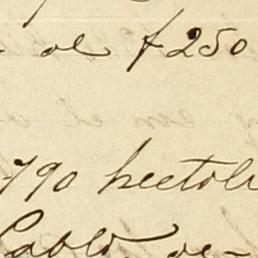 al f 250
790 hectoli
Pablo, de-